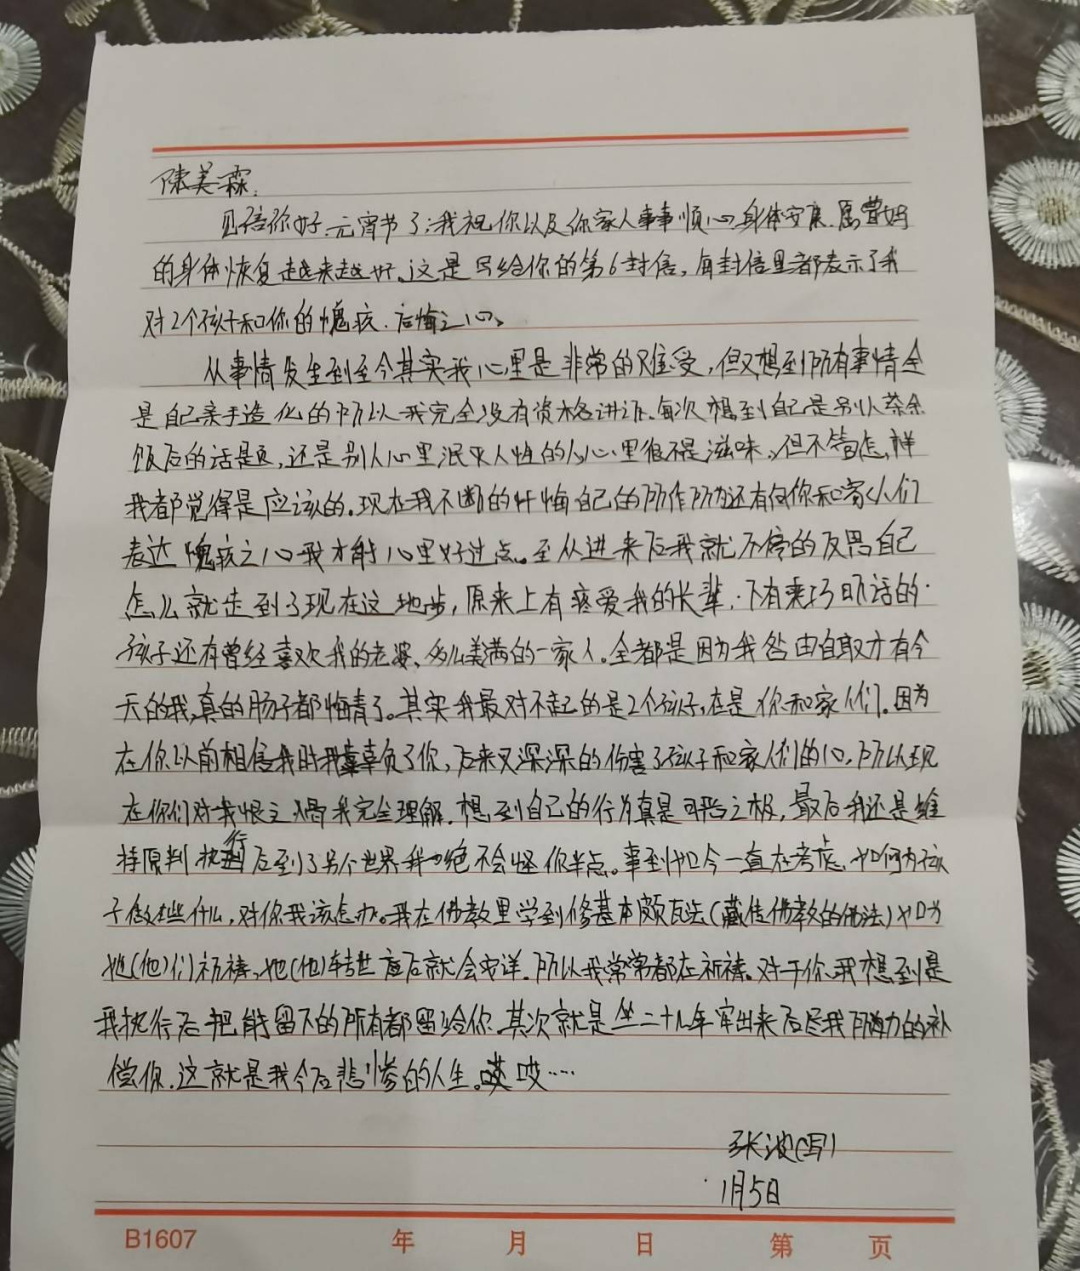 陈美霖:
见信你好.元宵节了:我祝你以及你家人事事顺心.身体安康.愿曹妈
的身体恢复越来越好。这是写给你的第6封信,每封信里都表示了我
对2个孩子和你的愧疚.后悔之心。
从事情发生到至今其实我心里是非常的难受,但又想到所有事情全
是自己亲手造化的所以我完全没有资格讲诉.每次想到自己是别人茶余
饭后的话是,还是别人心里泯灭人性的人心里很不是滋味。但不管怎样
我都觉得是应该的.现在我不断的忏悔自己的所作所为还有向你和家人们
表达愧疚之心我才能心里好过点。至从进来后我就不停的反思自己
怎么就走到了现在这地步,原来上有疼爱我的长辈.下有乖巧听话的
孩子还有曾经喜欢我的老婆、多么美满的一家人。全都是因为我咎由自取才有今
天的我,真的肠子都悔青了。其实我最对不起的是2个孩子,在是你和家人们.因为
在你以前相信我时我辜负了你,后来又深深的伤害了孩子和家人们的心,所以现
在你们对我恨之入骨我完全理解.想到自己的行为真是可恶之极,最后我还是维
持原判执行后到了另个世界我也绝不会怪你半点。事到如今一直在考虑,如何为孩
子做些什么,对你我该怎办。我在佛教里学到修基本颇瓦法(藏传佛教的佛法)如为
她(他)们祈祷,她(他)转世度后就会安详.所以我常常都在祈祷.对于你我想到是
我执行后把能留下的所有都留给你.其次就是坐二十几年牢出来后尽我所能力的补
偿你.这就是我今后悲惨的人生。哎哎……
张波(写)
1月5日
B1607 年 月 日 第 页